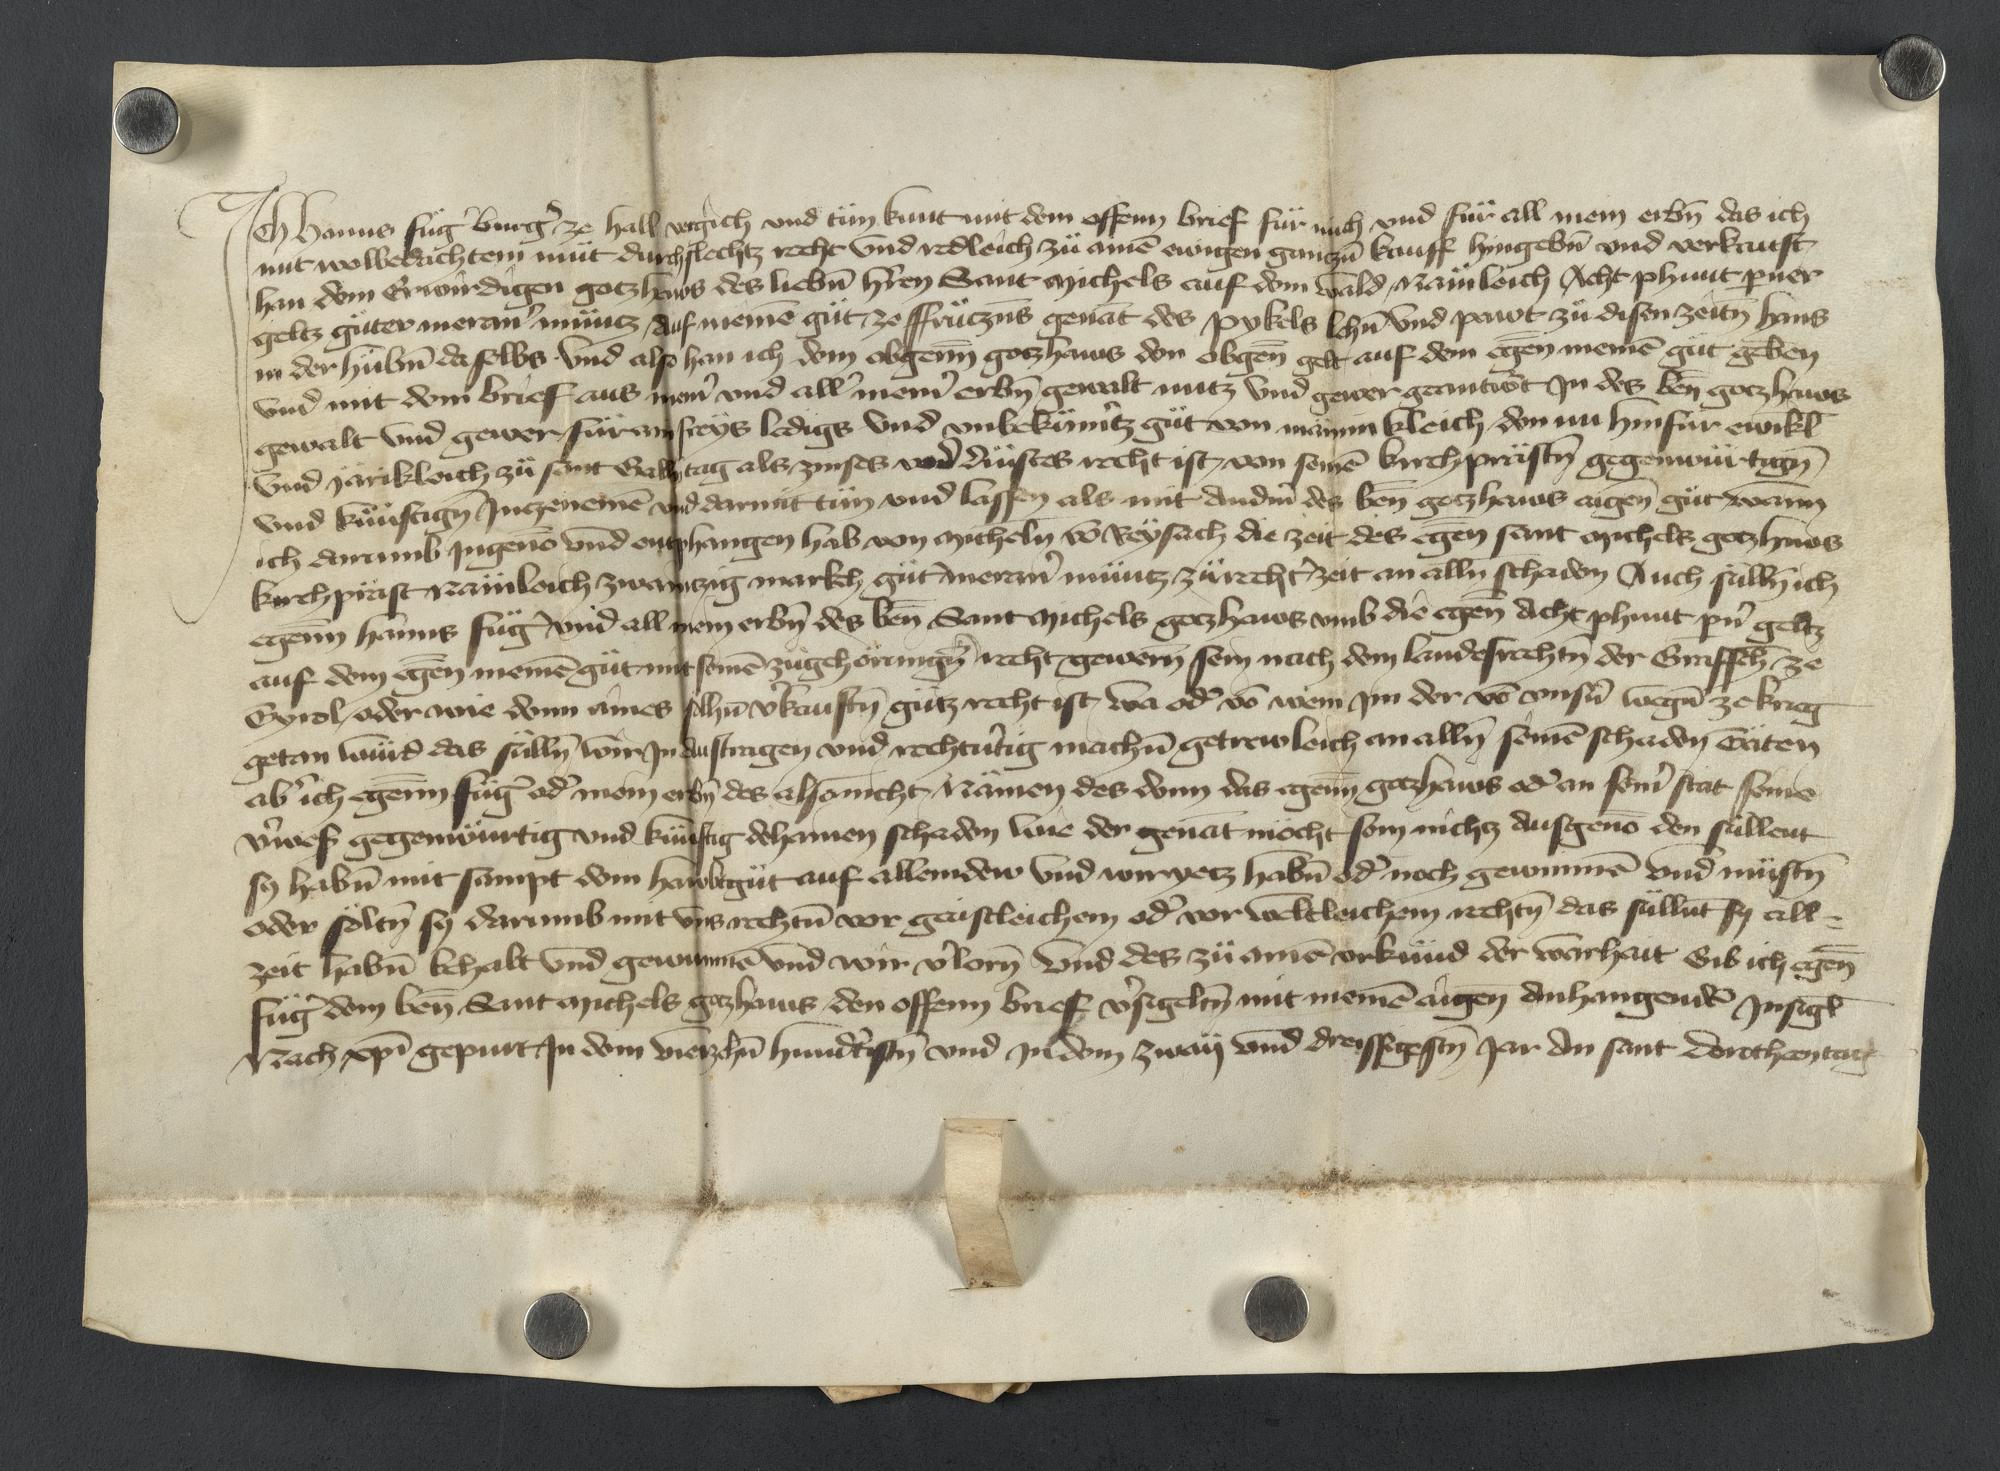 Ich Hanns füg̕ Burg̕ ze hall vergich vnd tün kunt mit dem offenn brief für mich vnd für all mein erbn̄ das ich
mit wolbedachtem müt durchslechtz recht vnd redleich zü ainē ewigen gantzn̄ kauff hingebn̄ vnd verkauft
han dem Erwirdigen gotzhaws des liebn̄ hr̄en Sant Michels auf dem wald Nämleich Acht phunt p̄ner
geltz güter meran̕ müntz auf meinē güt ze ffrützns genāt des pykels lehn̄ vnd pawt zü disen zeitn̄ hans
in der hübn̄ daselbs vnd also han ich dem obgenn̄ gotzhaws den obgen̄ gelt auf dem egen̄ meinē güt geben
vnd mit dem brief aus mein̕ vnd all̕ mein̕ erbn̄ gewalt nutz vnd gewer geantw̕t In des ben̄ gotzhaws
gewalt vnd gewer für ain freys ledigs vnd vnbekümrtz güt von männikleich den nu hinfür ewikl̄
vnd järikleich zü sant Gallntag als zinses vnd dinstes recht ist von seinē kirchprästn̄ gegenwürtign̄
vnd künftign̄ Inzenemē vnd darmit tün vnd lassen als mit andn̄ des ben̄ gotzhaws aigen̄ güt wann
ich darumb Ingenō vnd emphangen hab von Micheln vō Reysach die zeit des egen̄ sant Michels gotzhaws
kirchpräst Nämleich zwaintzig markch güt meran̕ müntz zü recht̕ zeit an alln̄ schaden Auch sülln̄ ich
egenn̄ hanns füg̕ vnd all mein erbn̄ des ben̄ Sant Michels gotzhaws vmb die egen̄ Acht phunt pn̕ geltz
auf dem egen̄ meinē güt mit seinē zügehörungn̄ recht gewern̄ sein nach dem landesrechtn̄ der Graffsch̄ ze
Tyrol oder wie denn aines solhn̄ v̕kauftn̄ gütz recht ist wa od̕ vō wem im der vō vnsn̕ wegn̄ ze krieg
getan würd das sülln̄ wir In austragen vnd rechtu̕tig machn̄ getrewleich an alln̄ seinē schaden Täten
ab̕ ich egenn̄ füg̕ od̕ mein erbn̄ des also nicht Nämen des denn das egenn̄ gotzhaws od̕ an sein̕ stat seine
v̕wes̕ gegenwürtig vnd künftig dehainen schaden wie der genāt möcht sein nichtz ausgenō den süllent
sy habn̄ mit sampt dem hawbtgüt auf allem dew vnd wir yetz habn̄ od̕ noch gewinnē vnd müstn̄
oder söltn̄ sy darumb mit vns rechtn̄ vor geistleichem od̕ vor weltleichem rechtn̄ das süllnt sy all-
zeit habn̄ behalt vnd gewunnē vnd wir v̕lorn̄ Vnd des zü ainē vrkünd der warhait Gib ich egen̄
füg̕ dem ben̄ Sant Michels gotzhaws den offenn brief v̕sigeltn̄ mit meinē aigen̄ anhangendē Insigl̄
Nach xpī gepurt In dem vierzehn̄ hundertistn̄ vnd In dem zwaÿ vnd dreissigestn̄ Jar an sant dorotheentag